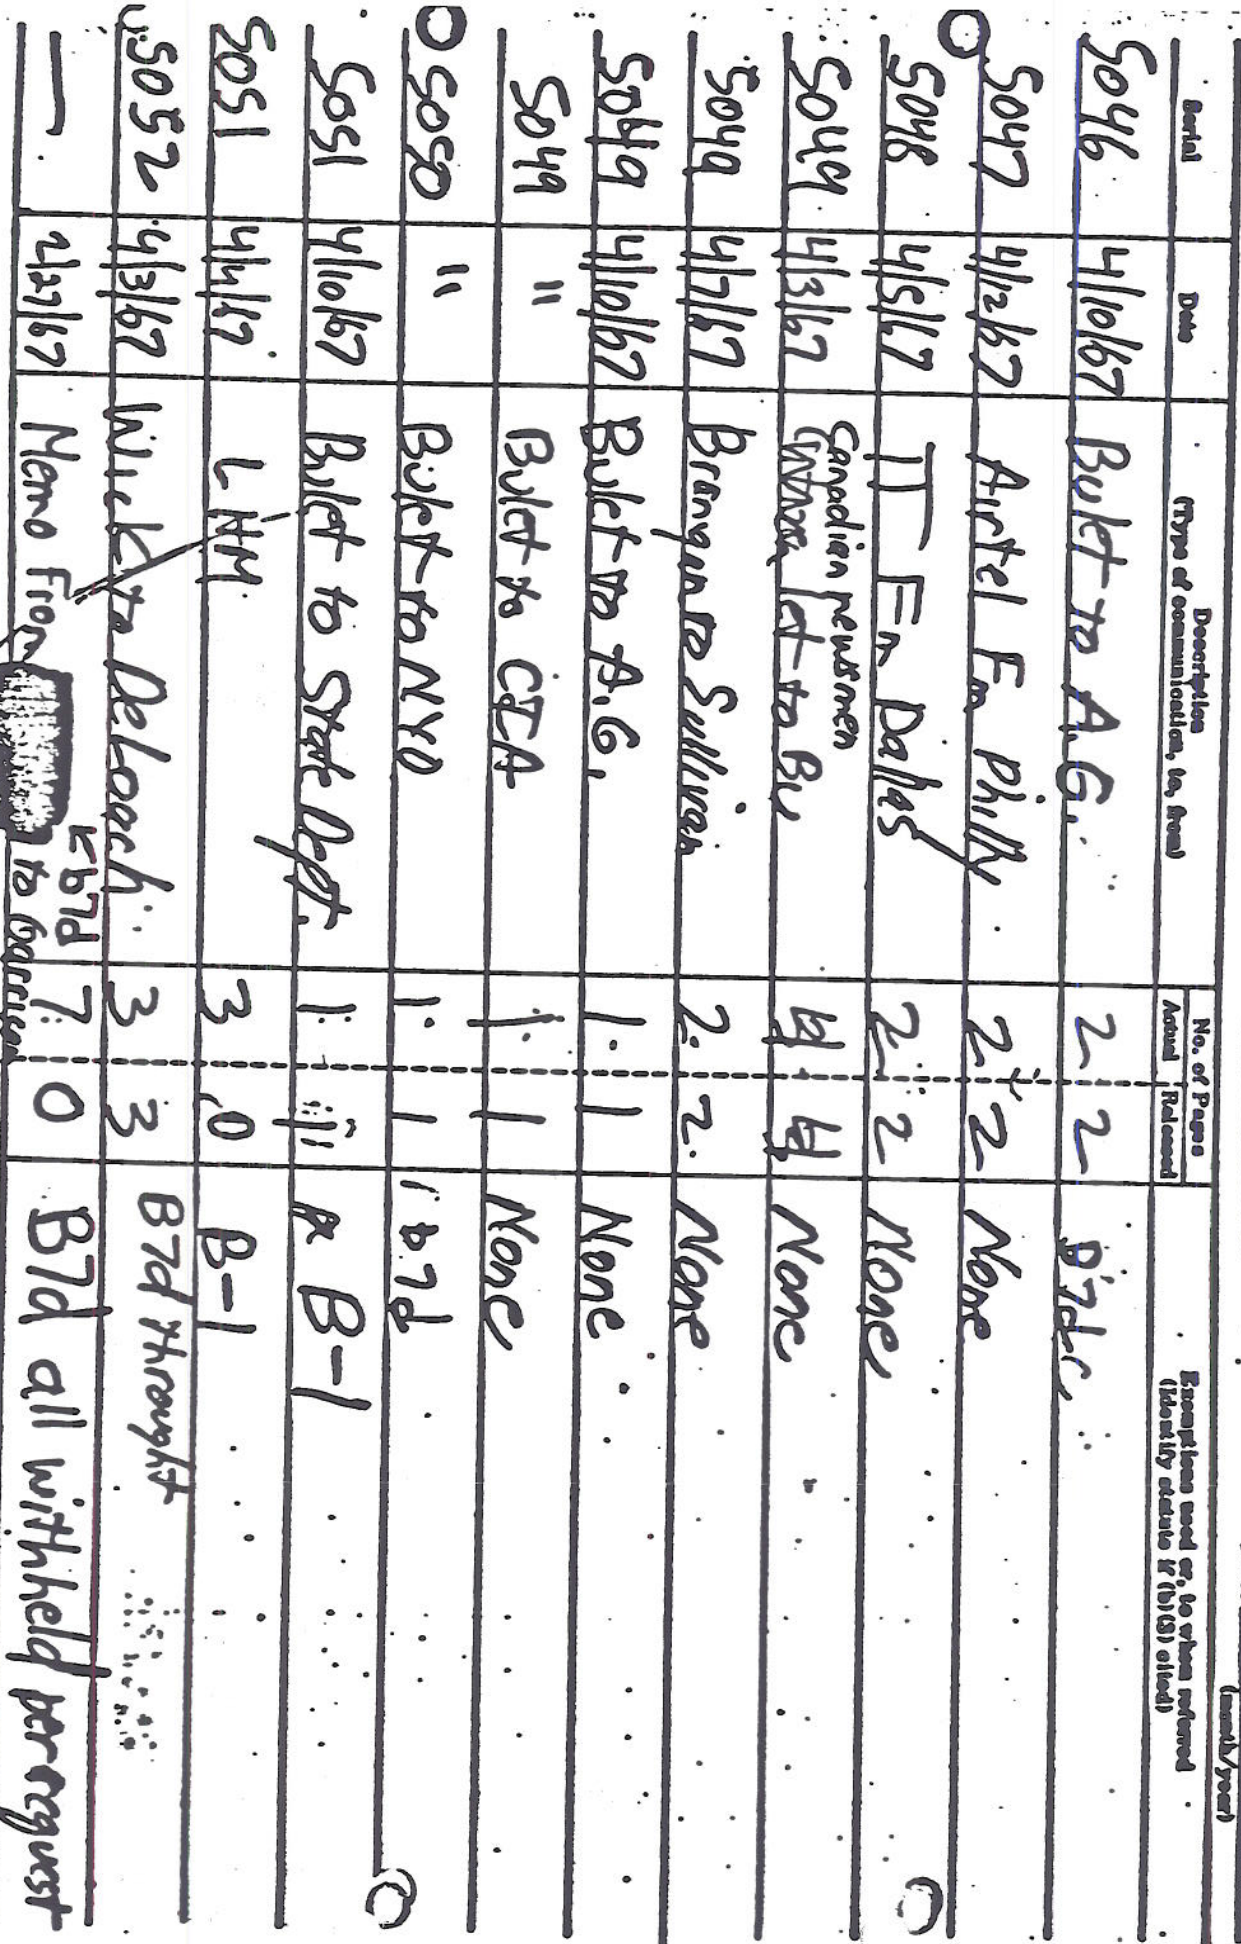 (month/year)
Serial Date Description (Type of communication, to, from) No. of Pages Actual Released Exemptions used or, to whom referred (Identify statute if (b)(3) cited)
5046 4/10/67 Bulet to A.G. 2 2
5047 4/12/67 Airtel Fm Philly 2 2 None
5048 4/5/67 TT Fm Dallas 2 2 None
5049 4/3/67 Canadian newsmen let to Bu 4 4 None
5049 4/7/67 Branigan to Sullivan 2 2 None
5049 4/10/67 Bulet to A.G. 1 1 None
5049 " Bulet to CIA 1 1 None
5050 " Bulet to NYO 1 1 b7d
5051 4/10/67 Bulet to State Dept. 1 B-1
5051 4/4/67 LHM 3 0 B-1
5052 4/3/67 Wick to DeLoach 3 3 B7d throught
— 2/27/67 Memo From b7d to Garrison 7 0 B7d all withheld per request